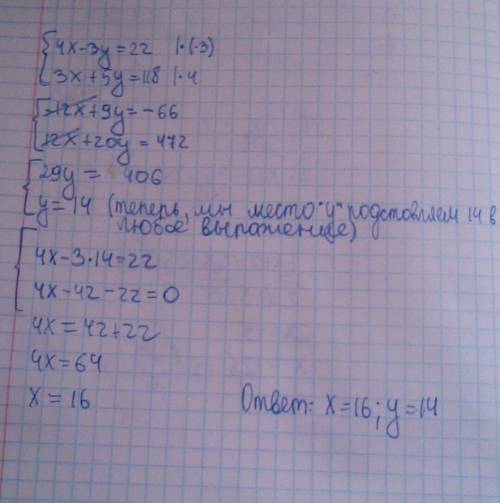 4x-3y=22 |·(-3)
3x+5y=118 |·4
-12x+9y=-66
12x+20y=472
29y= 406
y=14 (теперь, мы место "y" подстовляем 14 в
любое выражение)
4x-3·14=22
4x-42-22=0
4x=42+22
4x=64
x=16
Ответ: x=16; y=14